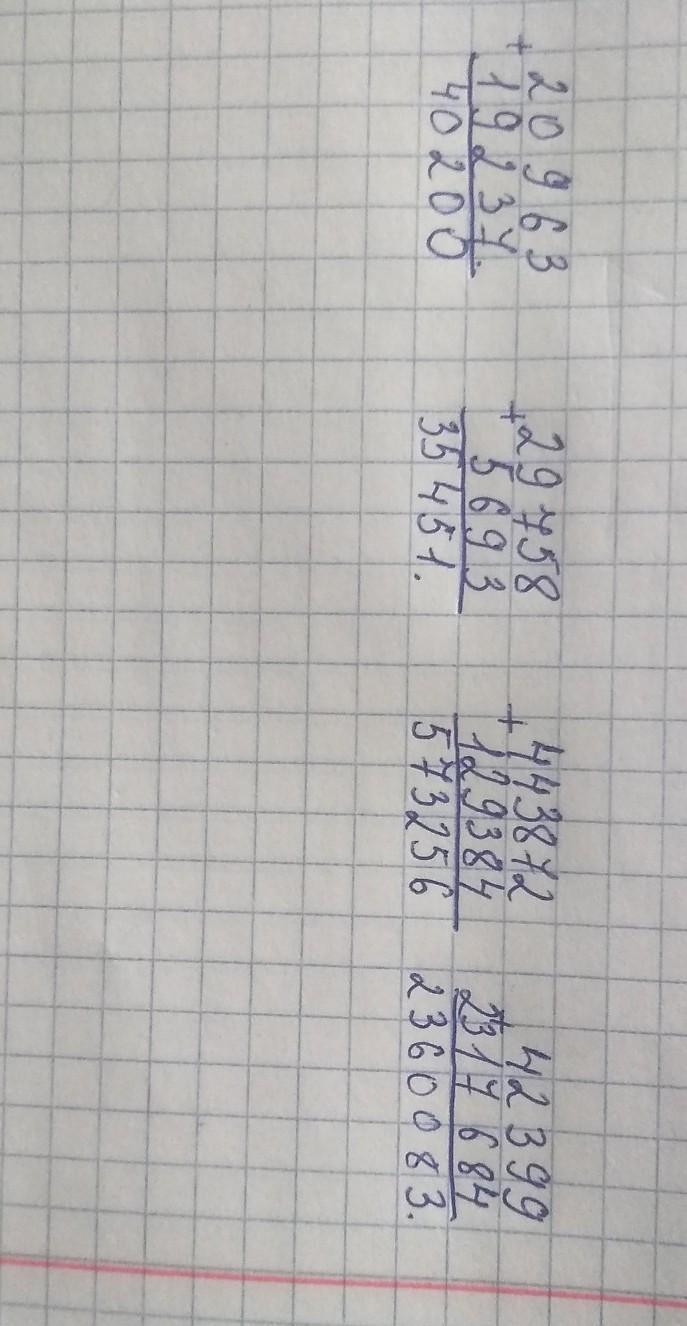 20963
+
19237.
40200
29758
+
5693
35451.
443872
+
129384
573256
42399
+
2317684
2360083.